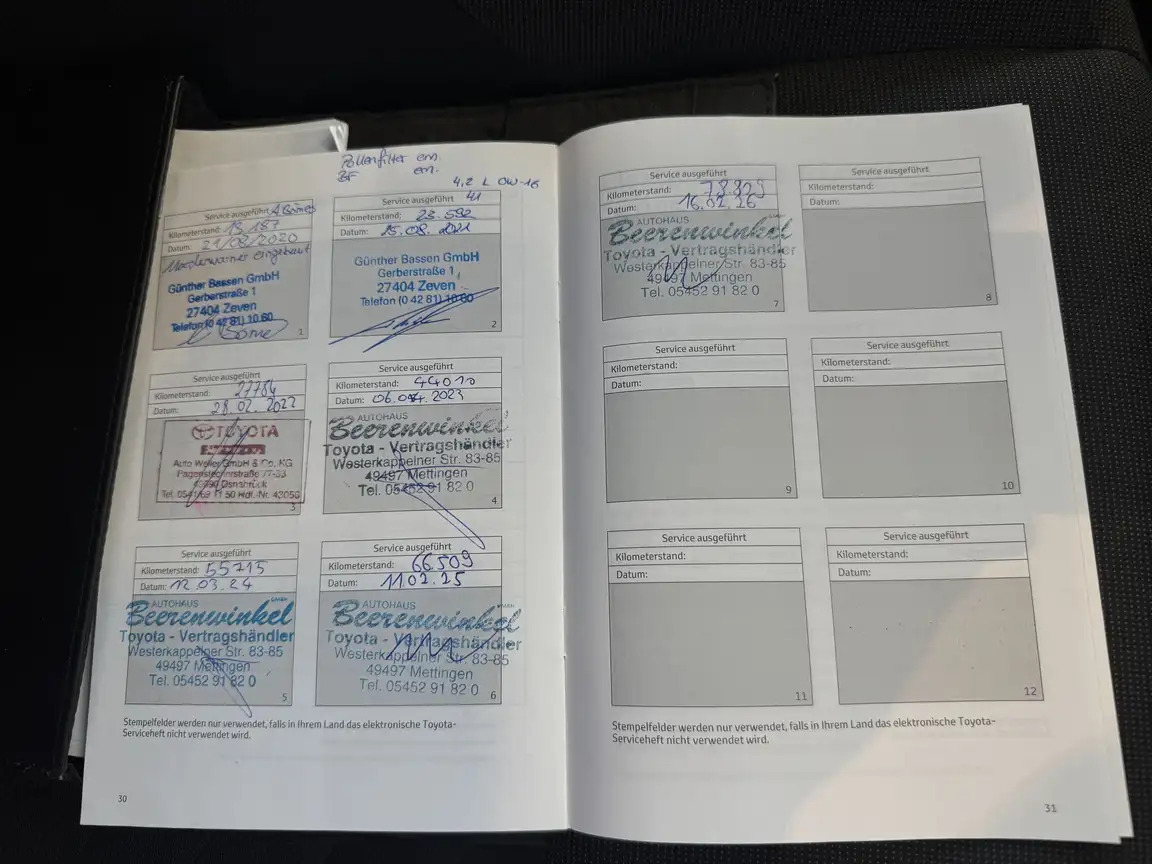 Pollenfilter ern.
BF ern.
4,2 L 0W-16
Service ausgeführt
Kilometerstand: 15.157
Datum: 21/08/2020
Marderwarner eingebaut
Günther Bassen GmbH
Gerberstraße 1
27404 Zeven
Telefon (0 42 81) 10 60
1
Service ausgeführt
Kilometerstand: 23.592
Datum: 25.08.2021
Günther Bassen GmbH
Gerberstraße 1
27404 Zeven
Telefon (0 42 81) 10 60
2
Service ausgeführt
Kilometerstand: 27784
Datum: 28.02.2022
TOYOTA
Auto Weller GmbH & Co. KG
Pagenstecherstraße 77-83
Osnabrück
3
Service ausgeführt
Kilometerstand: 44010
Datum: 06.04.2023
AUTOHAUS
Beerenwinkel
Toyota - Vertragshändler
Westerkappelner Str. 83-85
49497 Mettingen
Tel. 05452 91 82 0
4
Service ausgeführt
Kilometerstand: 55715
Datum: 12.03.24
AUTOHAUS
Beerenwinkel GmbH
Toyota - Vertragshändler
Westerkappelner Str. 83-85
49497 Mettingen
Tel. 05452 91 82 0
5
Service ausgeführt
Kilometerstand: 66509
Datum: 11.02.25
AUTOHAUS
Beerenwinkel GmbH
Toyota - Vertragshändler
Westerkappelner Str. 83-85
49497 Mettingen
Tel. 05452 91 82 0
6
Stempelfelder werden nur verwendet, falls in Ihrem Land das elektronische Toyota-
Serviceheft nicht verwendet wird.
30
Service ausgeführt
Kilometerstand: 78.829
Datum: 16.02.26
AUTOHAUS
Beerenwinkel GmbH
Toyota - Vertragshändler
Westerkappelner Str. 83-85
49497 Mettingen
Tel. 05452 91 82 0
7
Service ausgeführt
Kilometerstand:
Datum:
8
Service ausgeführt
Kilometerstand:
Datum:
9
Service ausgeführt
Kilometerstand:
Datum:
10
Service ausgeführt
Kilometerstand:
Datum:
11
Service ausgeführt
Kilometerstand:
Datum:
12
Stempelfelder werden nur verwendet, falls in Ihrem Land das elektronische Toyota-
Serviceheft nicht verwendet wird.
31